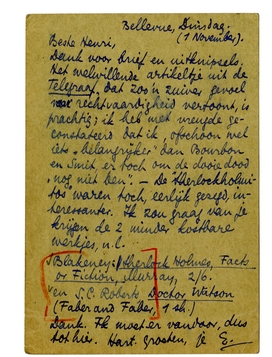 Bellevue, Dinsdag.
(1 November).
Beste Henri,
Dank voor brief en uitknipsels.
Het welwillende artikeltje uit de
Telegraaf, dat zo'n zuiver gevoel
voor rechtvaardigheid vertoont, is
prachtig; ik heb met vreugde ge-
constateerd dat ik, ofschoon wel
iets "belangrijker" dan Bourbon
en Smit er toch om de dooie dood
nog niet ben! — De "Sherlockholmi-
tos" waren toch, eerlijk gezegd, in-
teressanter. Ik zou graag van je
krijgen de 2 minder kostbare
werkjes, n.l.
Blakeney: Sherlock Holmes, Fact
or Fiction, Murray, 2/6.
en S.C. Roberts Doctor Watson
(Faber and Faber, 1 sh.)
Dank. Ik moet er vandoor, dus
tot hier. Hart. groeten, je E.